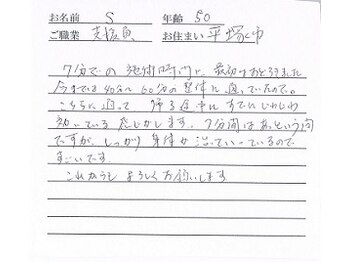 お名前 S 年齢 50
ご職業 支援員 お住まい 平塚市
7分での施術時間に、最初はおどろきました
今までは40分〜60分の整体に通っていたので。
こちらに通って 帰る途中にすでにじわじわ
効いている感じがします。7分間はあっという間
ですが、しっかり身体が治っていっているので
すごいです
これからもよろしくお願いします